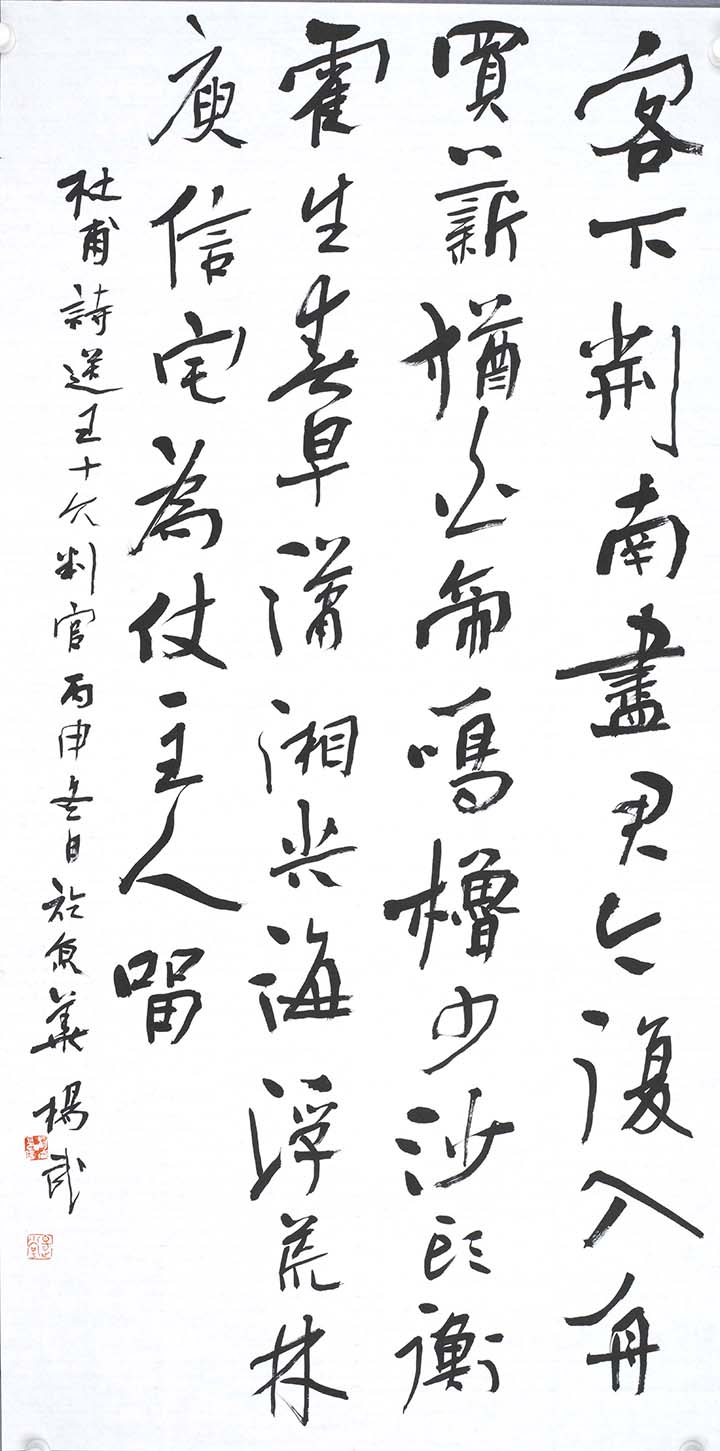 客下荆南盡君今復入舟
買薪猶白帝鳴櫓少沙頭衡
霍生春早瀟湘共海浮荒林
庾信宅為仗主人留
杜甫詩送王十六判官丙申冬日於京華楊武